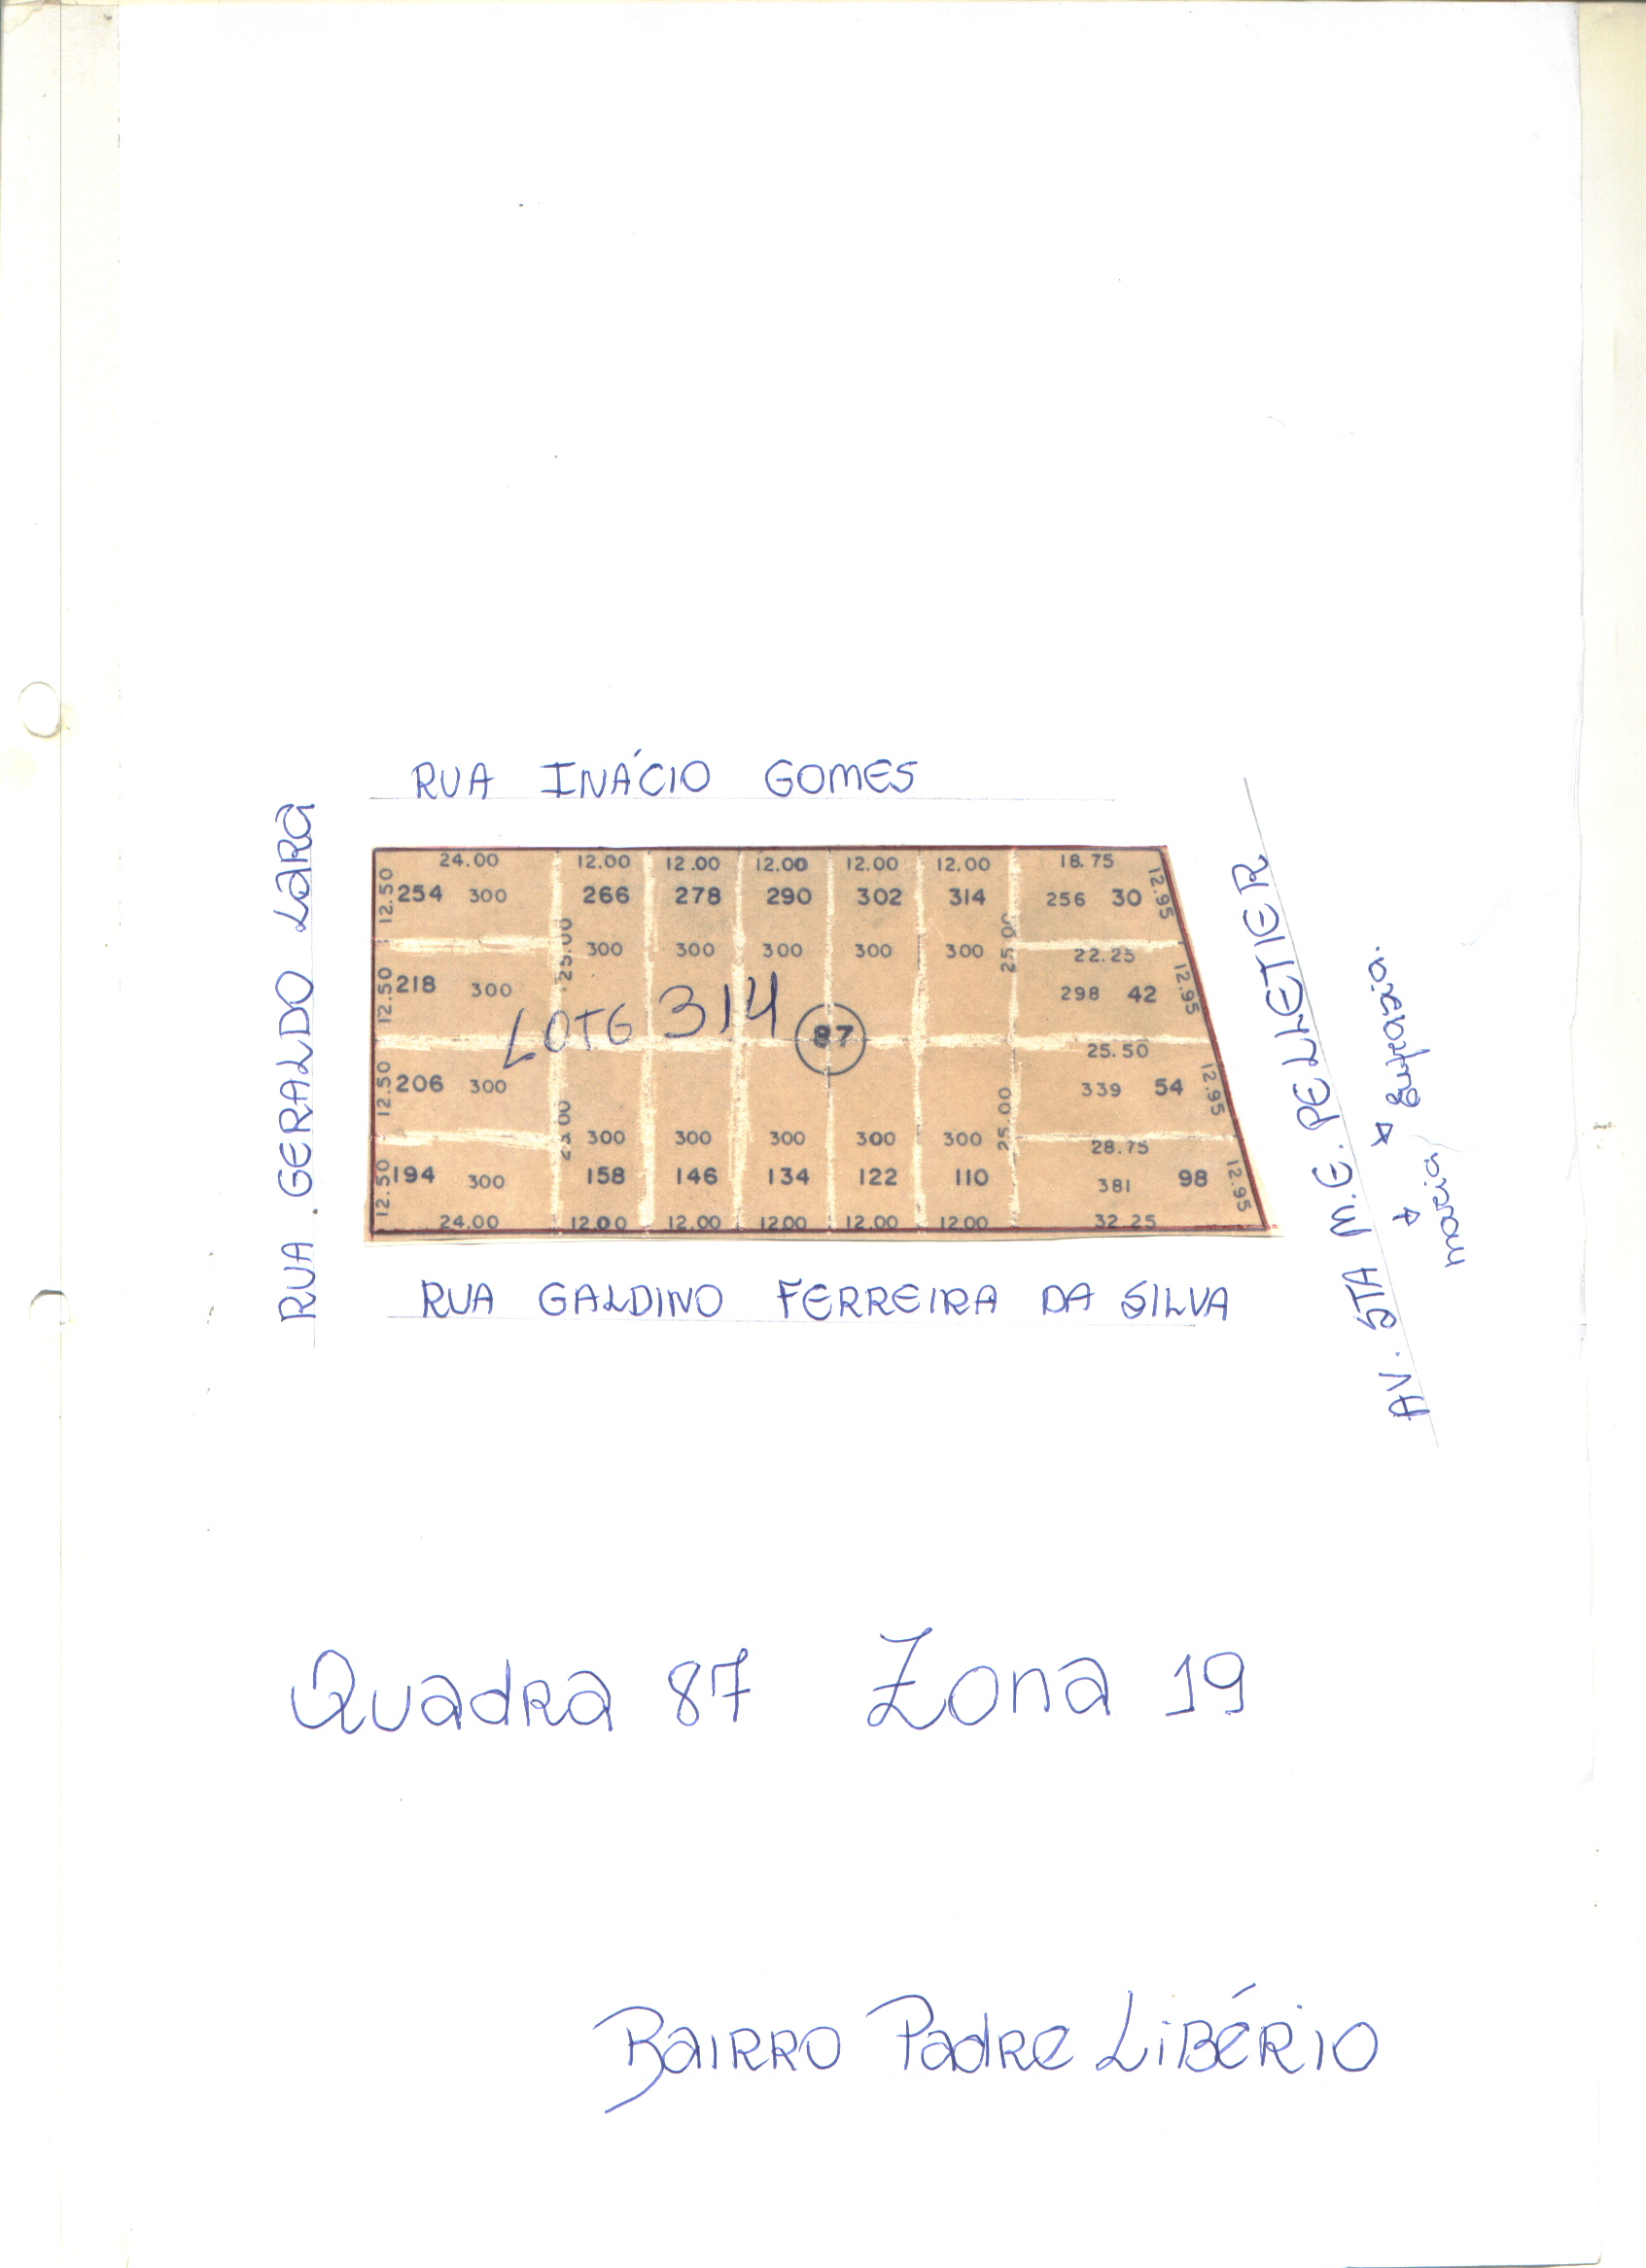 RUA INÁCIO GOMES
RUA GERALDO LARA
24.00 12.00 12.00 12.00 12.00 12.00 18.75
12.50 254 300 266 278 290 302 314 256 30 12.95
25.00 300 300 300 300 300 25.00 22.25
12.50 218 300 298 42 12.95
LOTE 314 87
25.50
12.50 206 300 339 54 12.95
25.00 300 300 300 300 300 25.00 28.75
12.50 194 300 158 146 134 122 110 381 98 12.95
24.00 12.00 12.00 12.00 12.00 12.00 32.25
AV. STA M.E. PELLETIER
Eufrasia.
maria
RUA GALDINO FERREIRA DA SILVA
Quadra 87 Zona 19
BAIRRO Padre LIBÉRIO